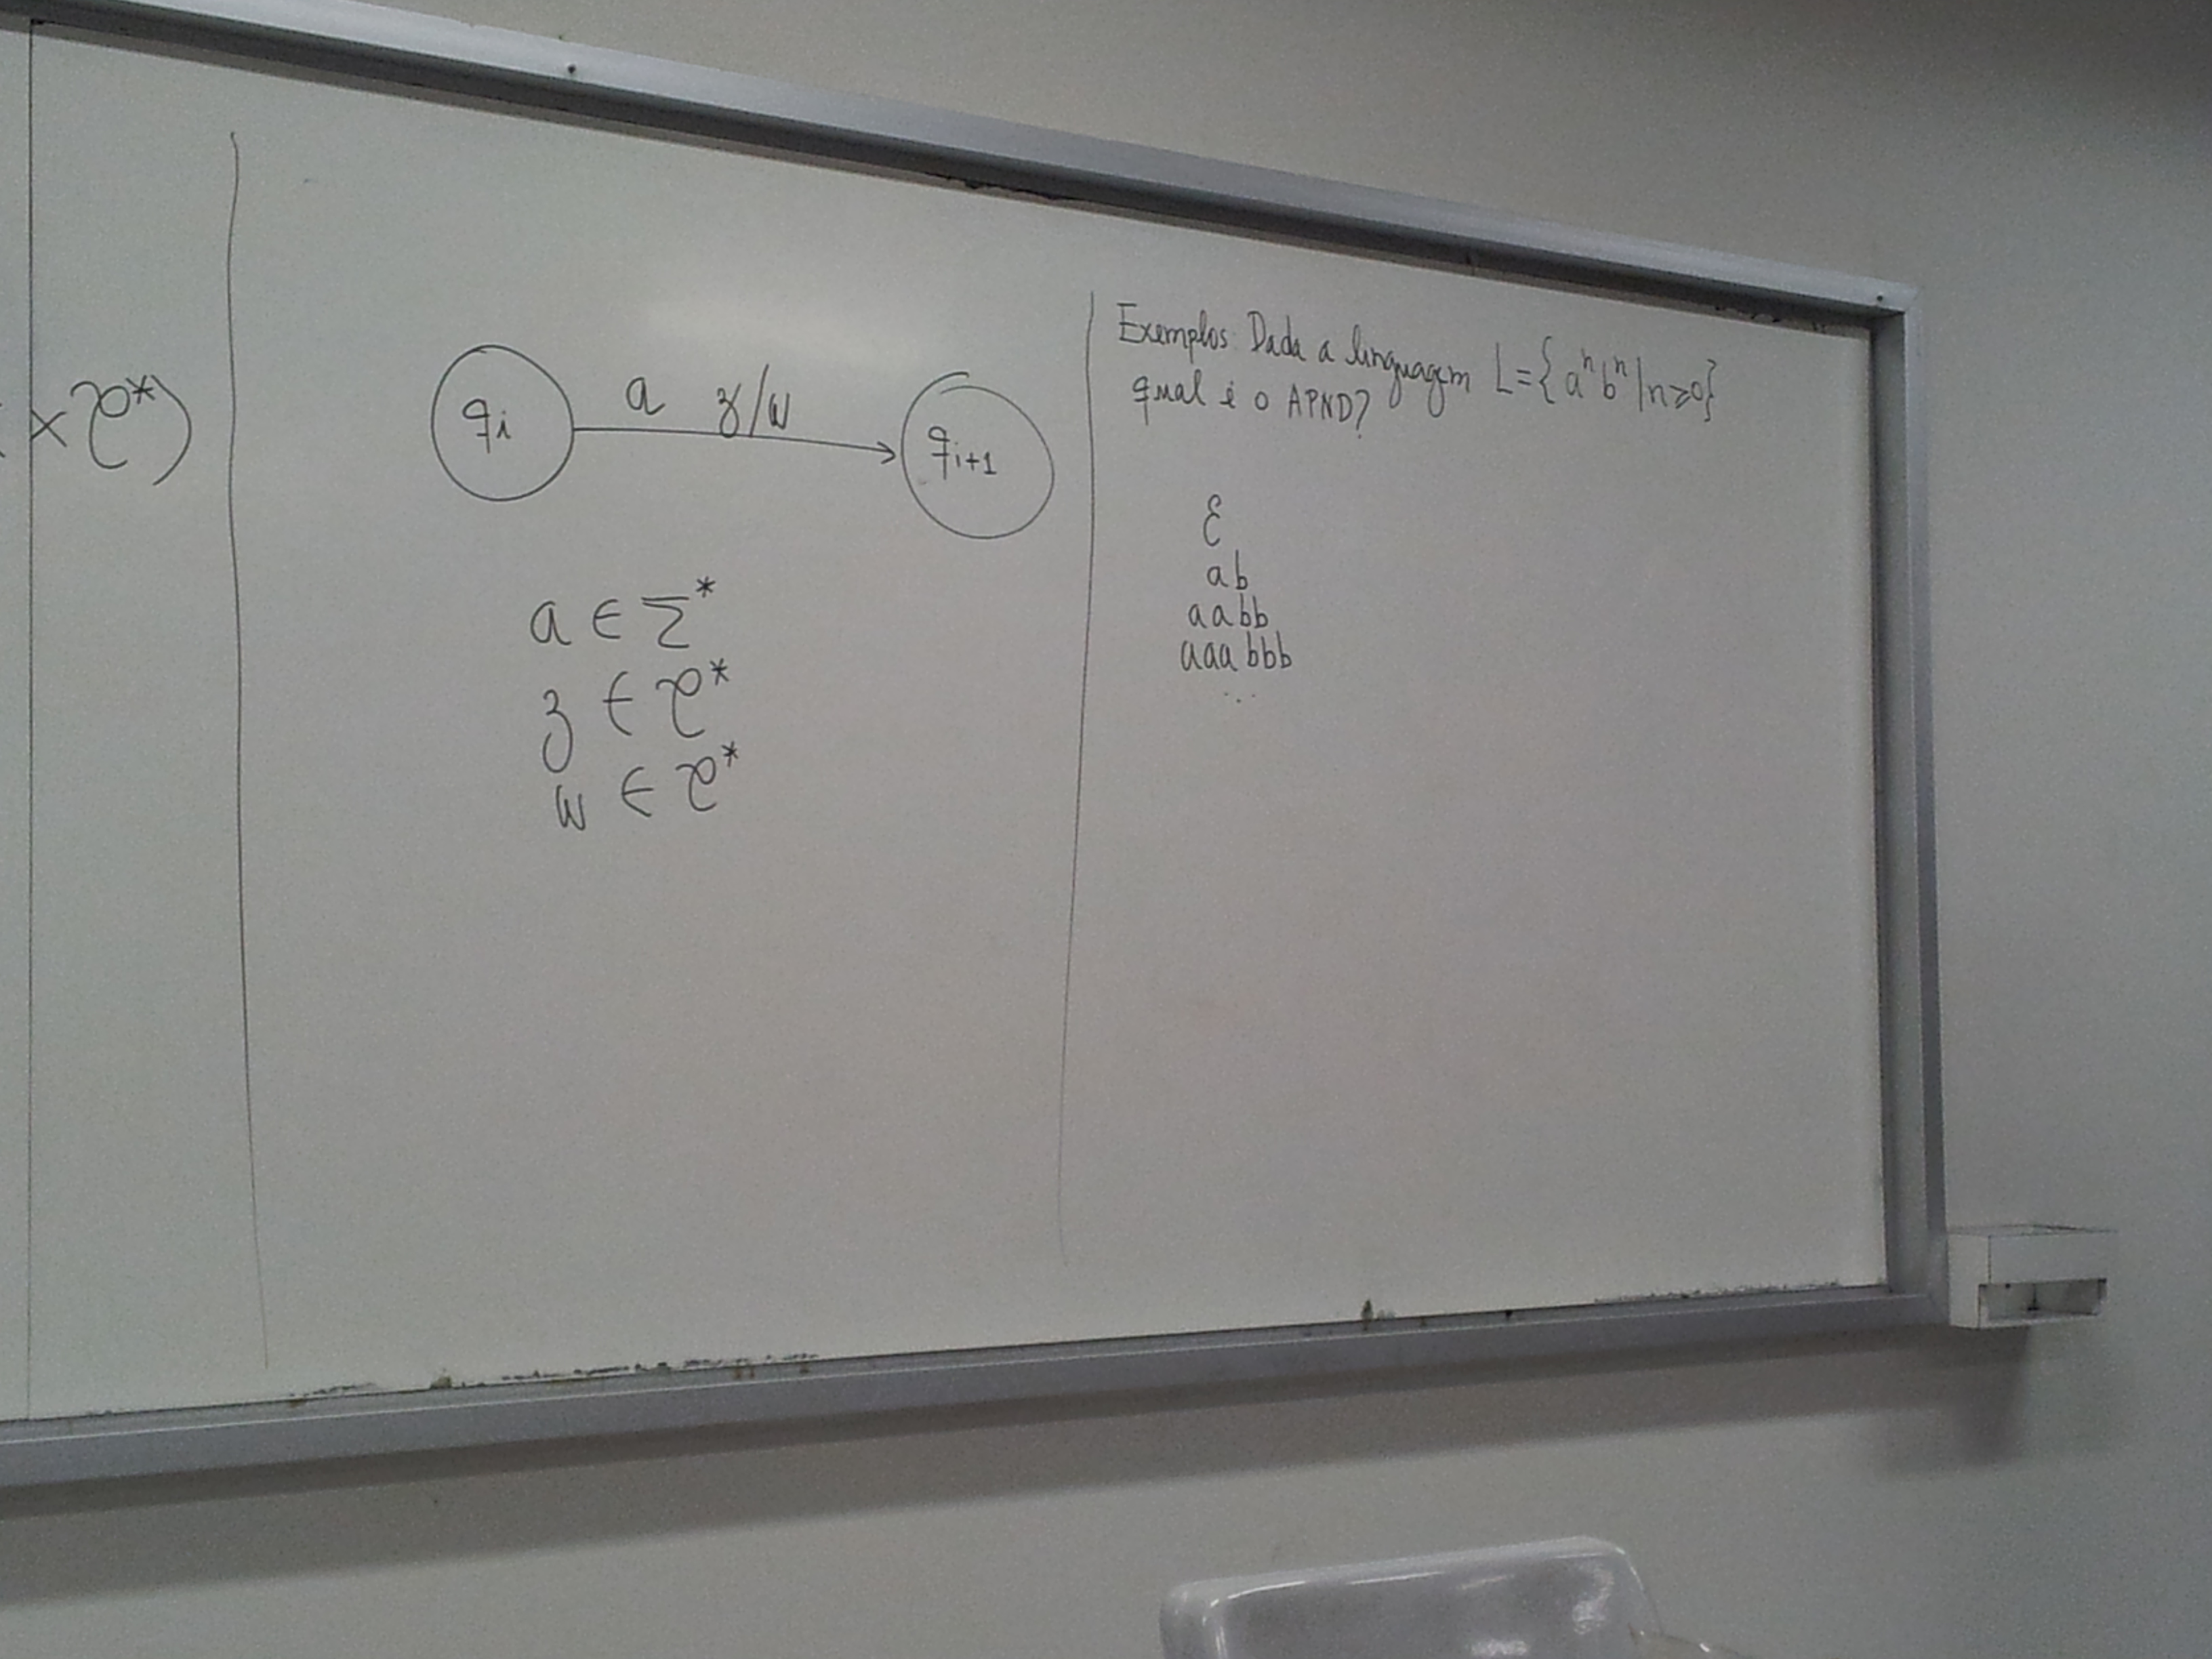 × τ*)
qi a z/w qi+1
a ∈ Σ*
z ∈ τ*
w ∈ τ*
Exemplos: Dada a linguagem L={aⁿbⁿ|n≥0}
qual é o APND?
ε
ab
aabb
aaabbb
...